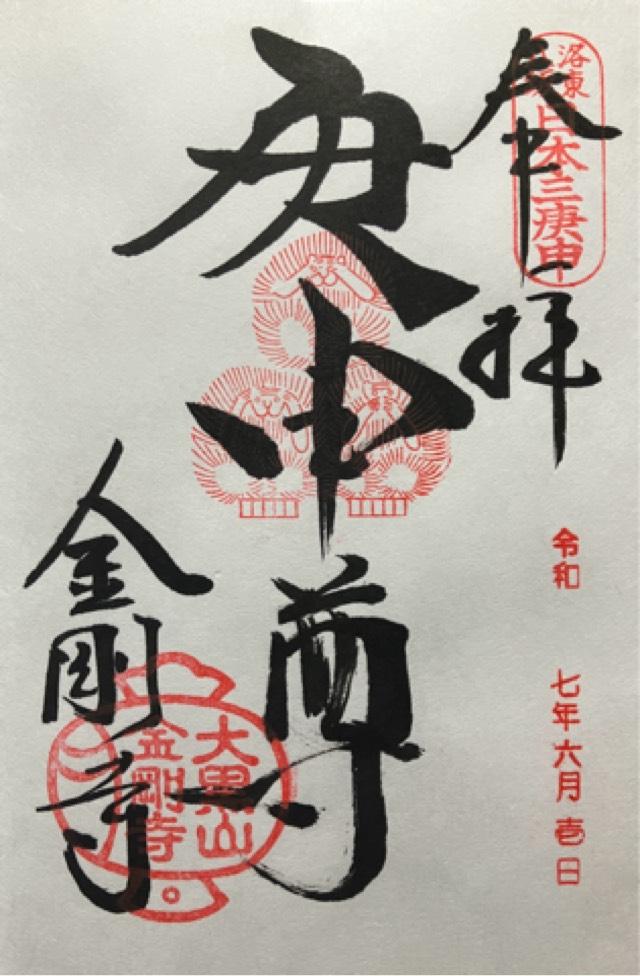 洛東
日本三庚申
奉拝
令和 七年六月壱日
庚申尊
大黒山
金剛寺
金剛寺